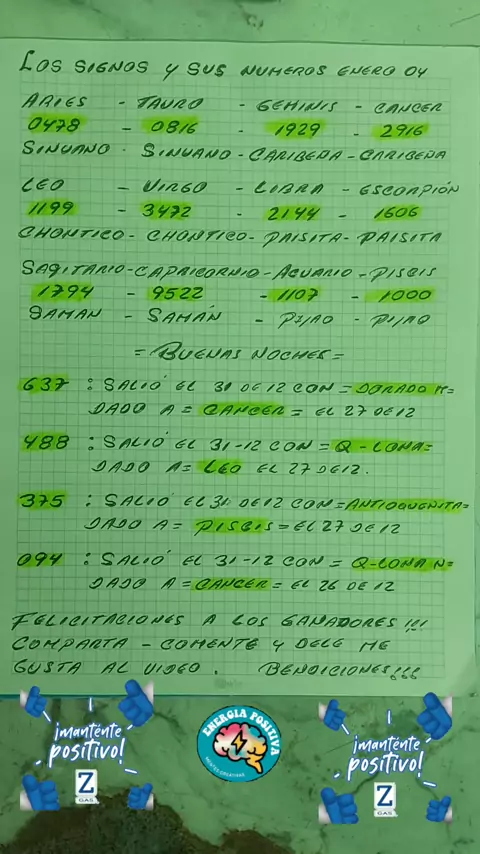 LOS SIGNOS Y SUS NUMEROS ENERO 04
ARIES - TAURO - GEMINIS - CANCER
0478 - 0816 - 1929 - 2916
SINUANO - SINUANO - CARIBEÑA - CARIBEÑA
LEO - VIRGO - LIBRA - ESCORPIÓN
1199 - 3472 - 2144 - 1606
CHONTICO - CHONTICO - PAISITA - PAISITA
SAGITARIO - CAPRICORNIO - ACUARIO - PISCIS
1794 - 9522 - 1107 - 1000
SAMAN - SAMÁN - PIJAO - PIJAO
= BUENAS NOCHES =
637 : SALIÓ EL 31 DE 12 CON = DORADO M=
DADO A = CANCER = EL 27 DE 12
488 : SALIÓ EL 31-12 CON = Q-LONA=
DADO A= LEO EL 27 DE 12.
375 : SALIÓ EL 31 DE 12 CON = ANTIOQUEÑITA=
DADO A = PISCIS = EL 27 DE 12
094 : SALIÓ EL 31-12 CON = Q-LONA N=
DADO A = CANCER = EL 26 DE 12
FELICITACIONES A LOS GANADORES !!!
COMPARTA - COMENTE Y DELE ME
GUSTA AL VIDEO. BENDICIONES!!!
¡manténte
positivo!
Z
GAS
ENERGÍA POSITIVA
MENTES CREATIVAS
¡manténte
positivo!
Z
GAS